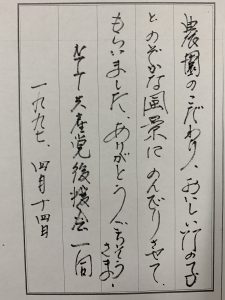 農園のこだわり、おいしい竹の子
とのどかな風景にのんびりさせて
もらいました、ありがとうごちそうさま!
共産党後援会一同
一九九七、四月十四日